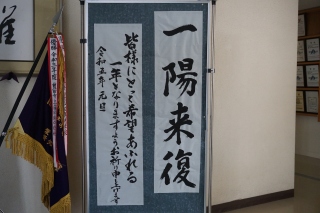 一陽来復
皆様にとって希望あふれる
一年となりますようお祈り申し上げます
令和五年 元旦